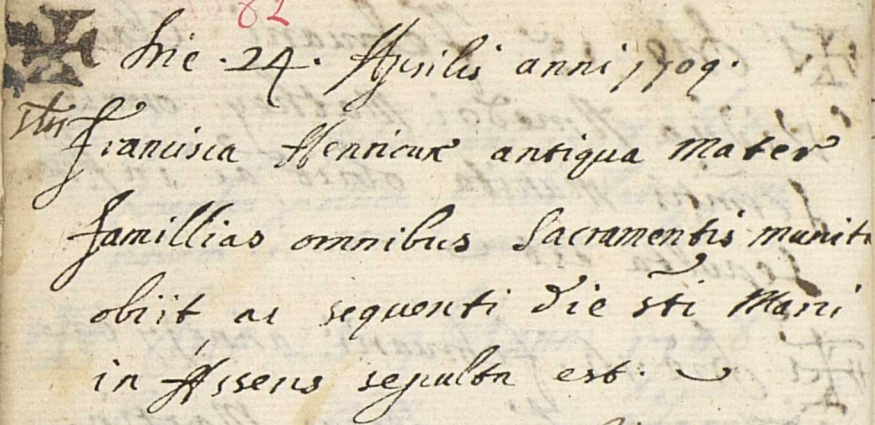 82
Die .24. Aprilis anni 1709.
Francisca Henrioux antiqua Mater
famillias omnibus Sacramentis munita
obiit ac sequenti die sti Marci
in Assens sepulta est.